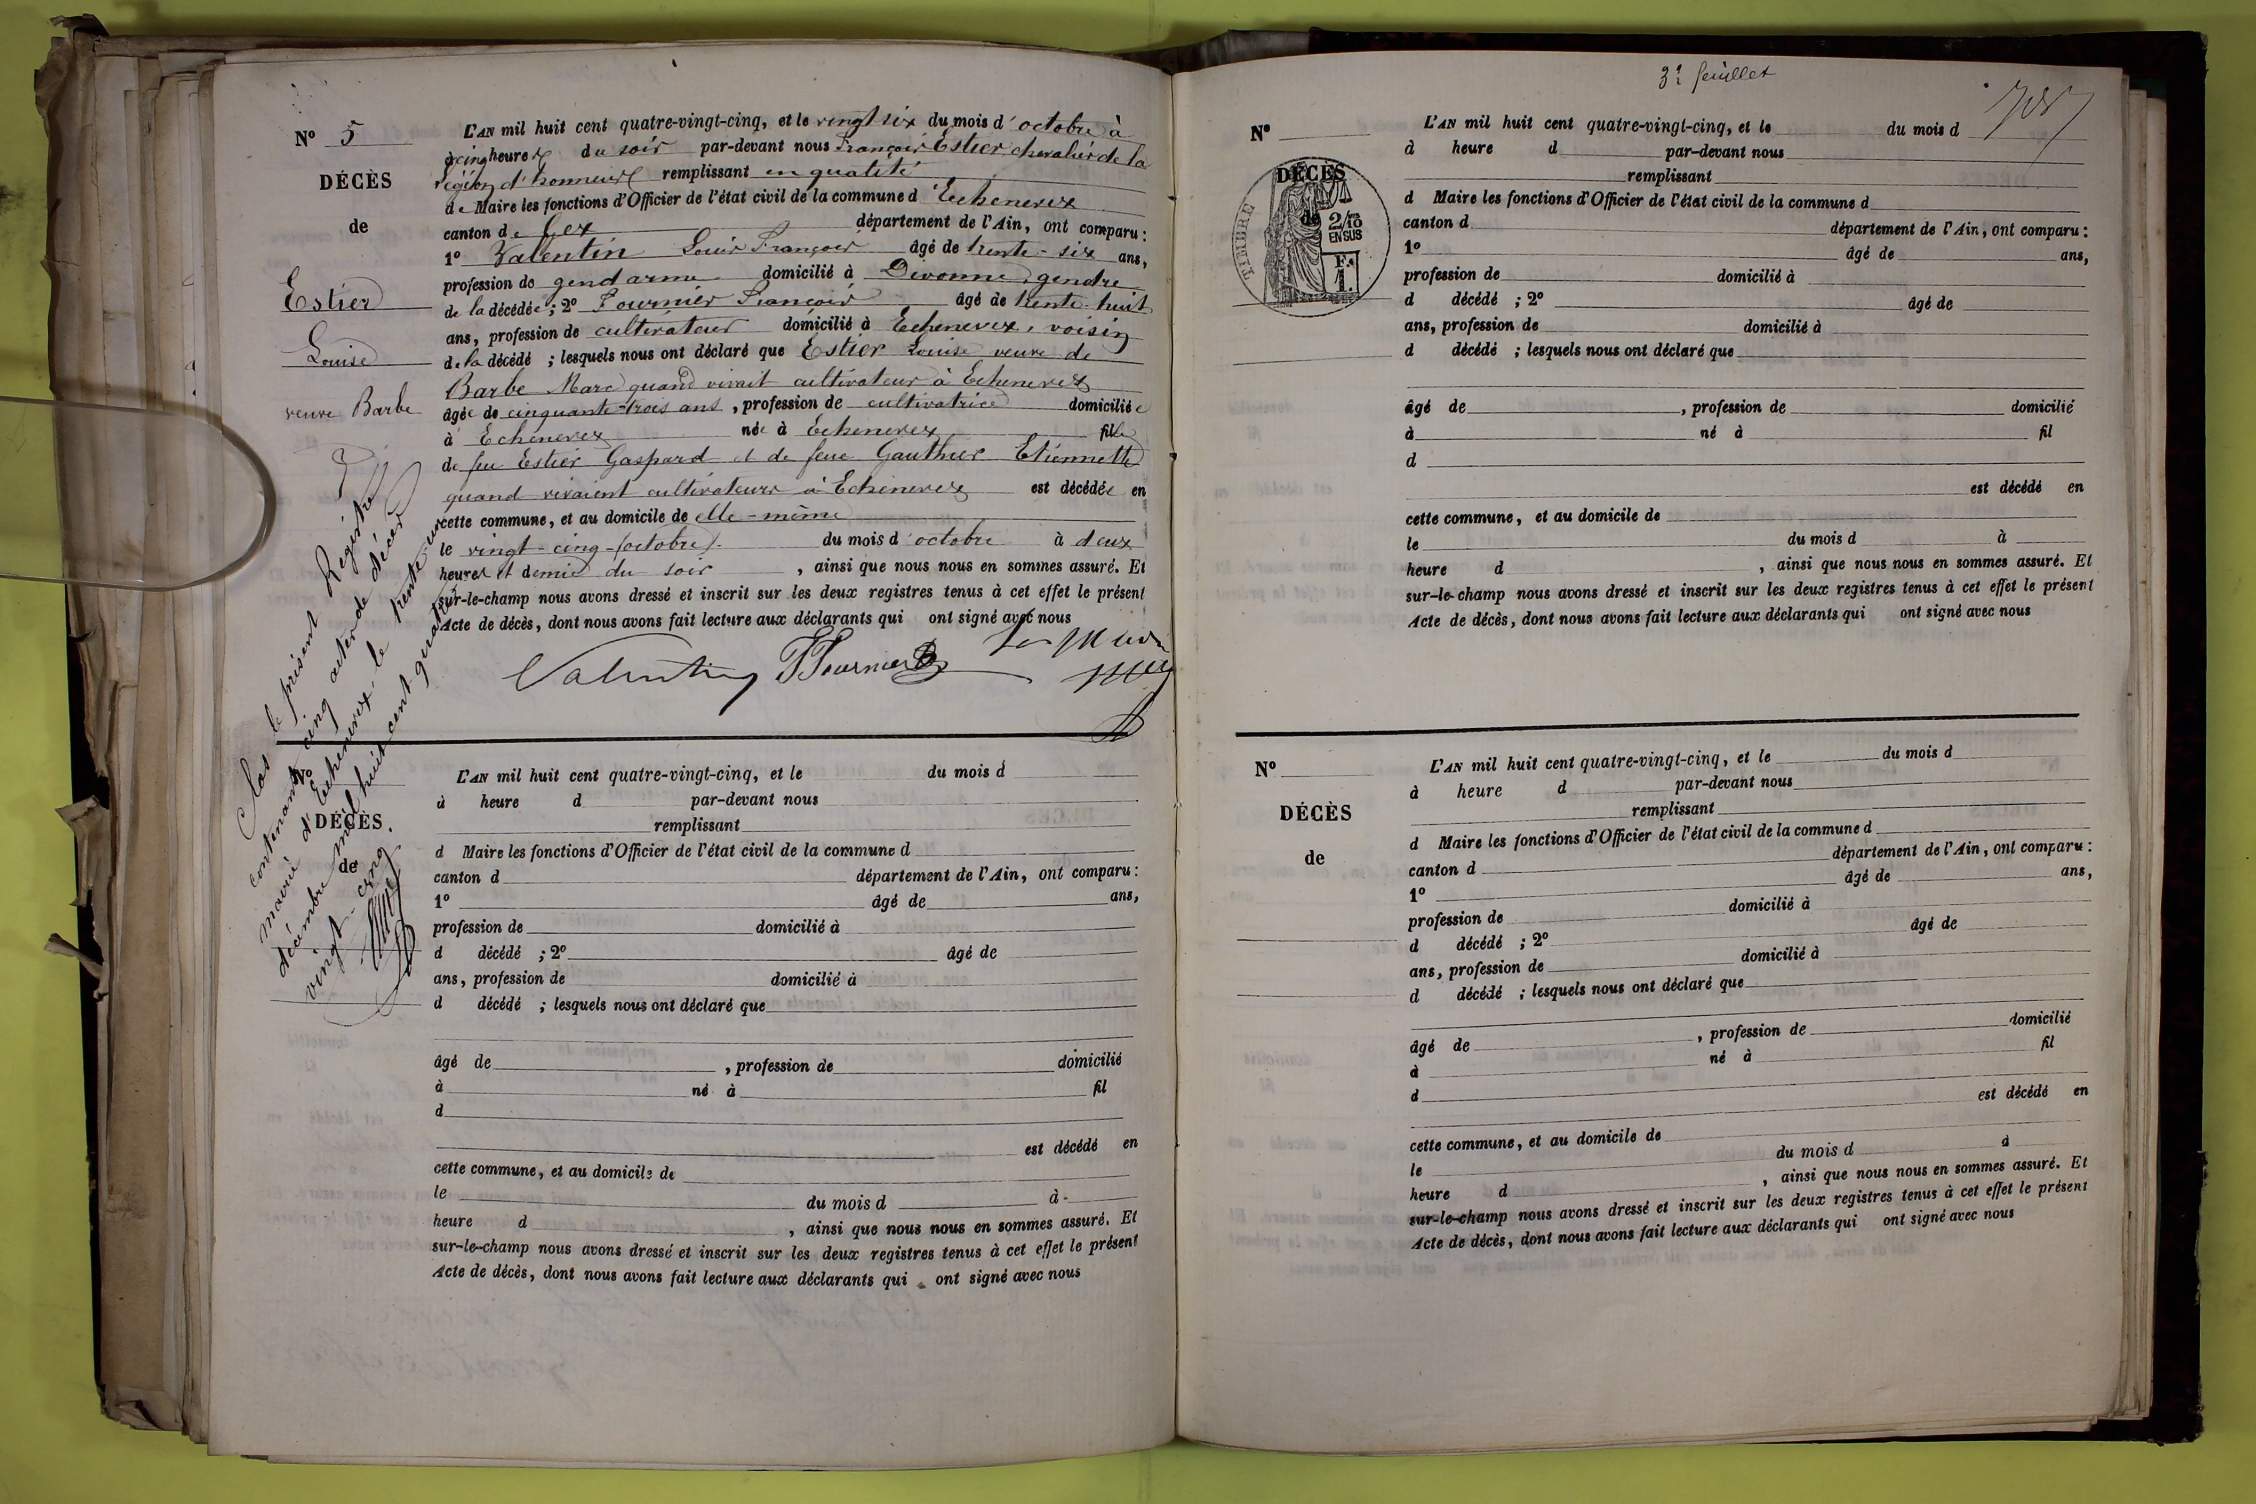 N° 5
DÉCÈS
de
Estier
Louise
veuve Barbe
L'AN mil huit cent quatre-vingt-cinq, et le vingt six du mois d'octobre à
à cinq heures du soir par-devant nous François Estier chevalier de la
légion d'honneur remplissant en qualité
de Maire les fonctions d'Officier de l'état civil de la commune d'Echenevex
canton de Gex département de l'Ain, ont comparu :
1° Valentin Louis François âgé de trente-six ans,
profession de gendarme domicilié à Divonne, gendre
de la décédée ; 2° Fournier François âgé de trente-huit
ans, profession de cultivateur domicilié à Echenevex, voisin
de la décédé ; lesquels nous ont déclaré que Estier Louise veuve de
Barbe Marc quand vivait cultivateur à Echenevex
âgée de cinquante-trois ans, profession de cultivatrice domiciliée
à Echenevex née à Echenevex fille
de feu Estier Gaspard et de feue Gauthier Etiennette
quand vivaient cultivateurs à Echenevex est décédée en
cette commune, et au domicile de elle-même
le vingt-cinq (octobre) du mois d'octobre à deux
heures et demie du soir, ainsi que nous nous en sommes assuré. Et
sur-le-champ nous avons dressé et inscrit sur les deux registres tenus à cet effet le présent
Acte de décès, dont nous avons fait lecture aux déclarants qui ont signé avec nous
Valentin F Fournier
Clos le présent Registre
contenant cinq actes de décès
mairie d'Echenevex le trente un
décembre mil huit cent quatre
vingt-cinq.
N°
DÉCÈS
de
L'AN mil huit cent quatre-vingt-cinq, et le du mois d
à heure d par-devant nous
remplissant
d Maire les fonctions d'Officier de l'état civil de la commune d
canton d département de l'Ain, ont comparu :
1° âgé de ans,
profession de domicilié à
d décédé ; 2° âgé de
ans, profession de domicilié à
d décédé ; lesquels nous ont déclaré que
âgé de , profession de domicilié
à né à fil
d
est décédé en
cette commune, et au domicile de
le du mois d à
heure d , ainsi que nous nous en sommes assuré. Et
sur-le-champ nous avons dressé et inscrit sur les deux registres tenus à cet effet le présent
Acte de décès, dont nous avons fait lecture aux déclarants qui ont signé avec nous
3e feuillet
N°
DÉCÈS
de
TIMBRE
2/10
EN SUS
F.
1.
L'AN mil huit cent quatre-vingt-cinq, et le du mois d
à heure d par-devant nous
remplissant
d Maire les fonctions d'Officier de l'état civil de la commune d
canton d département de l'Ain, ont comparu :
1° âgé de ans,
profession de domicilié à
d décédé ; 2° âgé de
ans, profession de domicilié à
d décédé ; lesquels nous ont déclaré que
âgé de , profession de domicilié
à né à fil
d
est décédé en
cette commune, et au domicile de
le du mois d à
heure d , ainsi que nous nous en sommes assuré. Et
sur-le-champ nous avons dressé et inscrit sur les deux registres tenus à cet effet le présent
Acte de décès, dont nous avons fait lecture aux déclarants qui ont signé avec nous
N°
DÉCÈS
de
L'AN mil huit cent quatre-vingt-cinq, et le du mois d
à heure d par-devant nous
remplissant
d Maire les fonctions d'Officier de l'état civil de la commune d
canton d département de l'Ain, ont comparu :
1° âgé de ans,
profession de domicilié à
d décédé ; 2° âgé de
ans, profession de domicilié à
d décédé ; lesquels nous ont déclaré que
âgé de , profession de domicilié
à né à fil
d
est décédé en
cette commune, et au domicile de
le du mois d à
heure d , ainsi que nous nous en sommes assuré. Et
sur-le-champ nous avons dressé et inscrit sur les deux registres tenus à cet effet le présent
Acte de décès, dont nous avons fait lecture aux déclarants qui ont signé avec nous